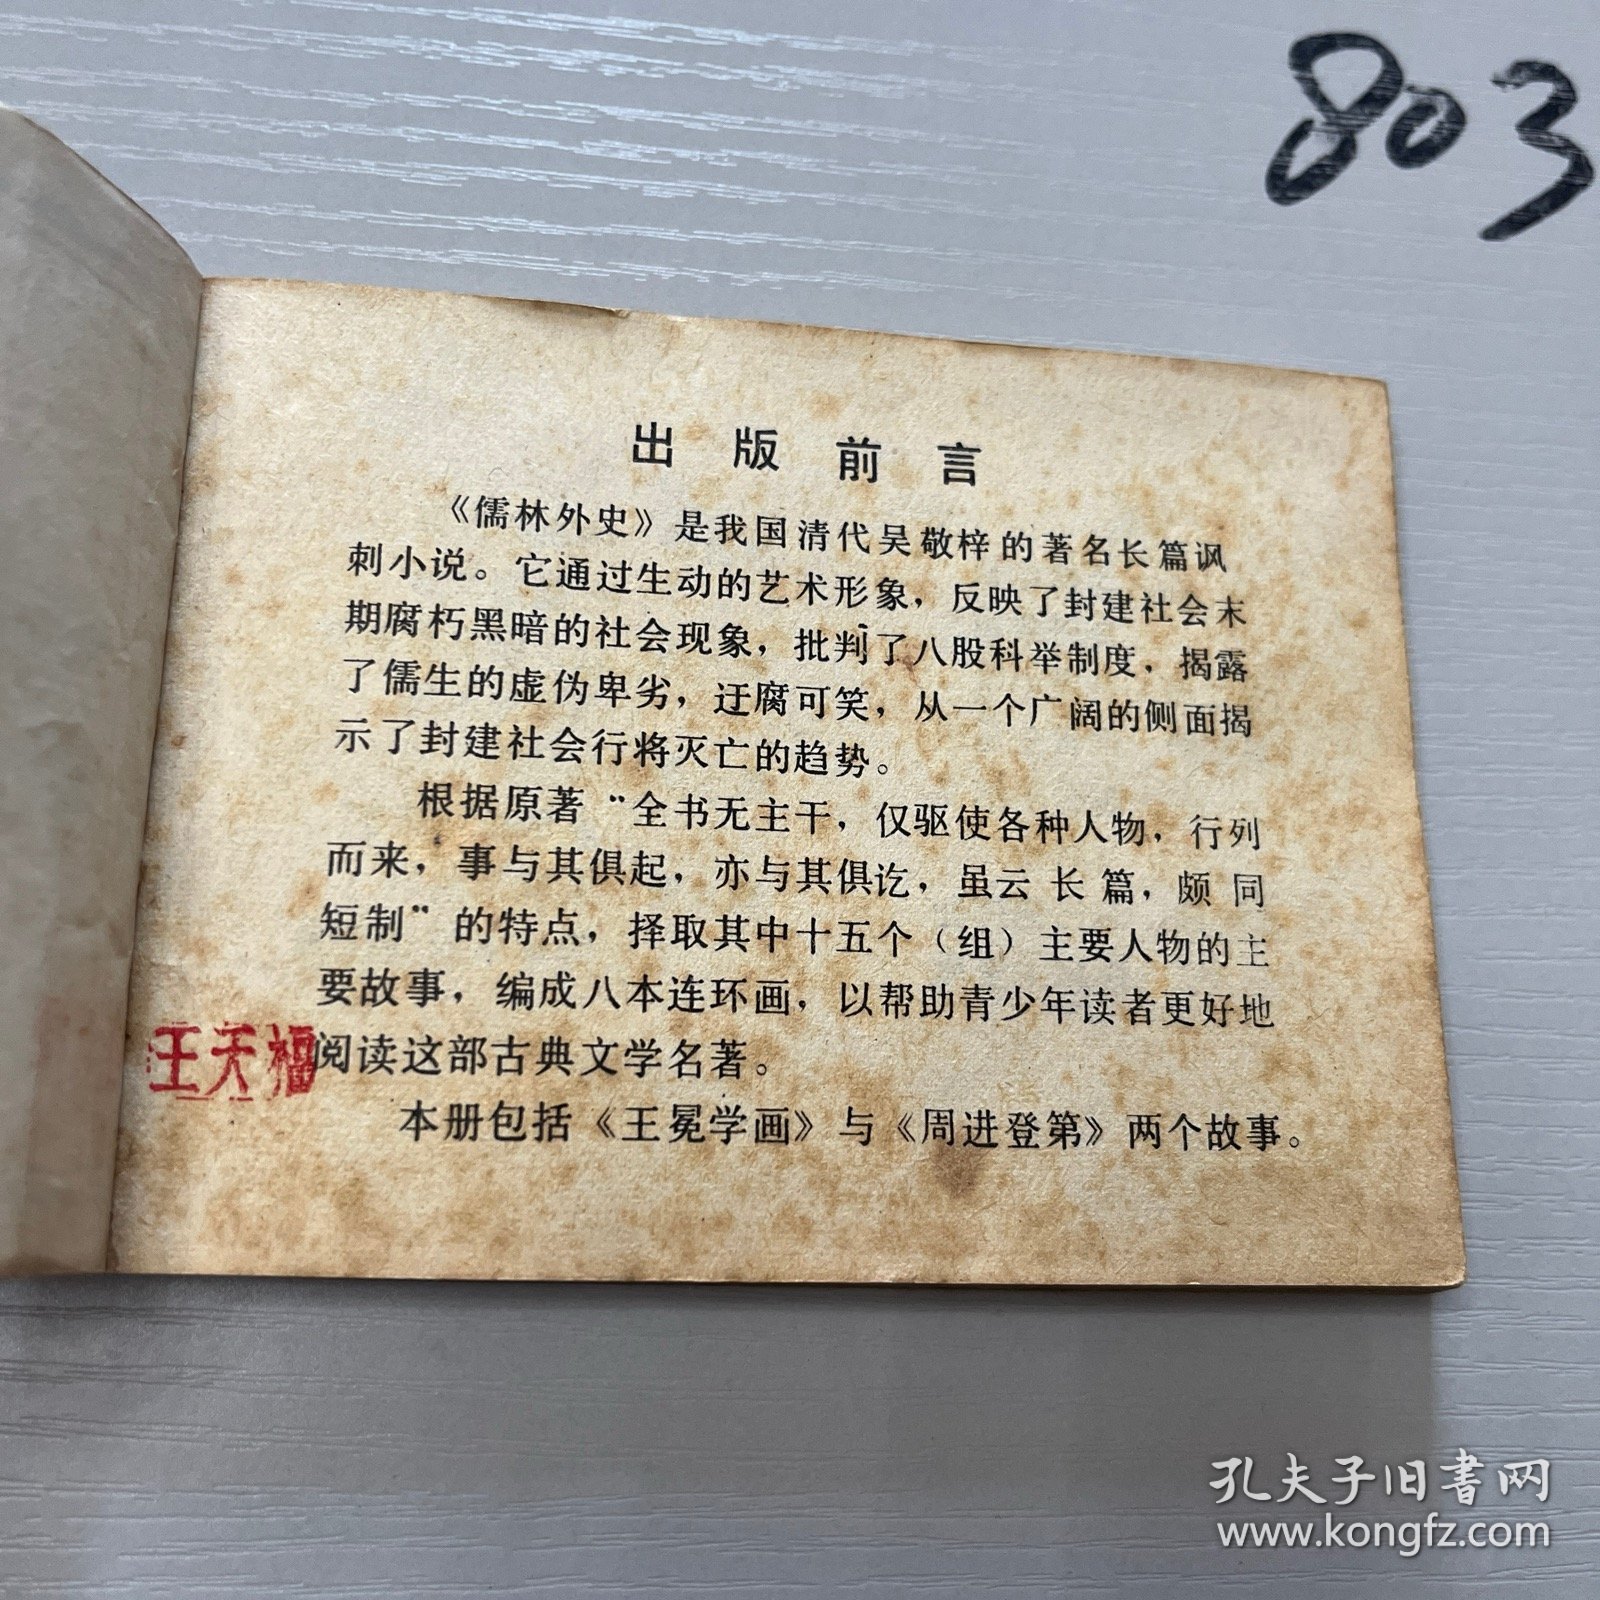 803
出版前言
《儒林外史》是我国清代吴敬梓的著名长篇讽
刺小说。它通过生动的艺术形象，反映了封建社会末
期腐朽黑暗的社会现象，批判了八股科举制度，揭露
了儒生的虚伪卑劣，迂腐可笑，从一个广阔的侧面揭
示了封建社会行将灭亡的趋势。
根据原著“全书无主干，仅驱使各种人物，行列
而来，事与其俱起，亦与其俱讫，虽云长篇，颇同
短制”的特点，择取其中十五个（组）主要人物的主
要故事，编成八本连环画，以帮助青少年读者更好地
阅读这部古典文学名著。
王天福
本册包括《王冕学画》与《周进登第》两个故事。
孔夫子旧书网
www.kongfz.com